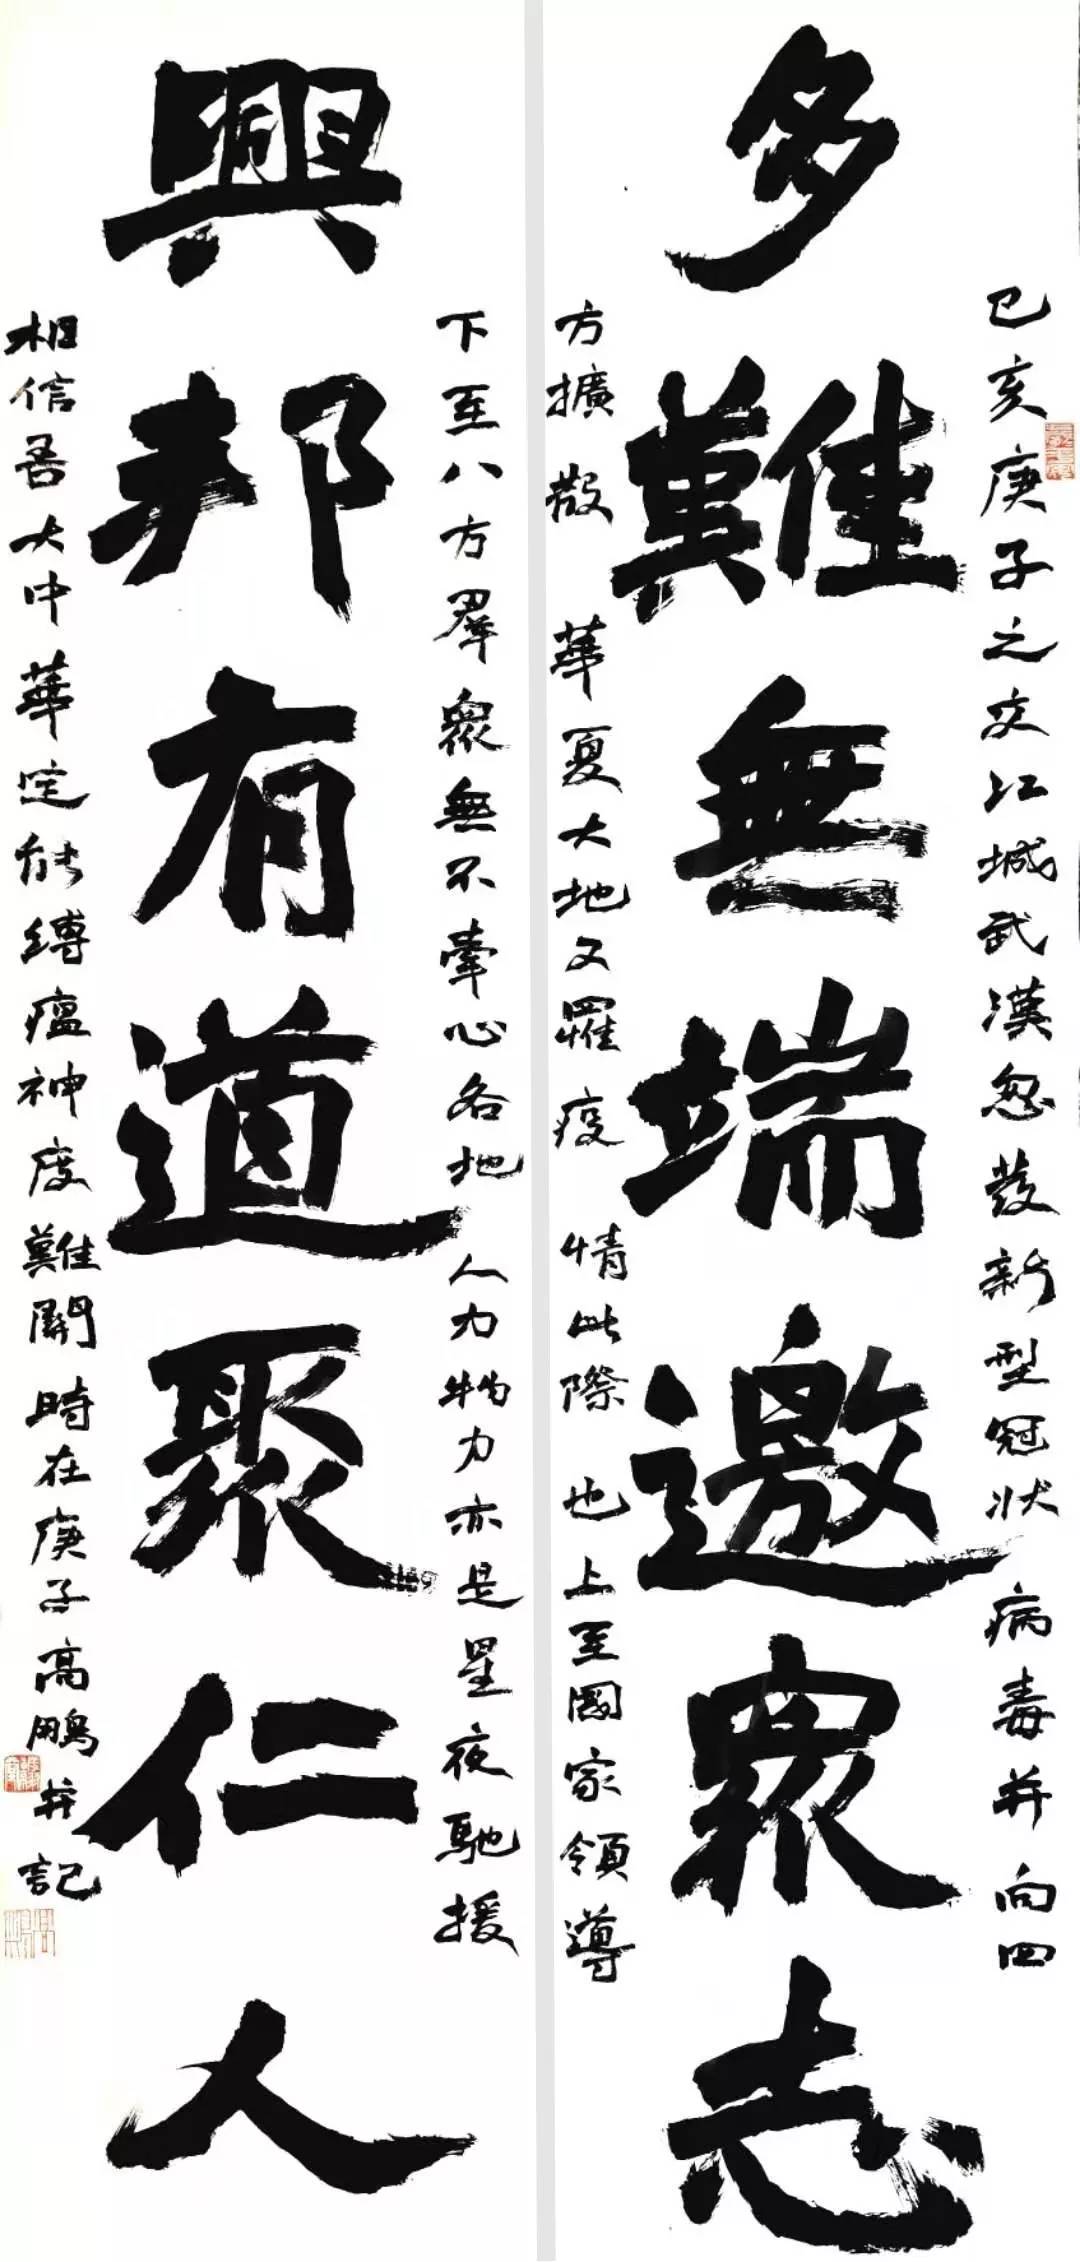 多難無端邀眾志
己亥庚子之交江城武漢忽發新型冠狀病毒并向四
方擴散華夏大地又罹疫情此際也上至國家領導
興邦有道聚仁人
下至八方羣眾無不牽心各地人力物力亦是星夜馳援
相信吾大中華定能縛瘟神度難關時在庚子高鵬并記